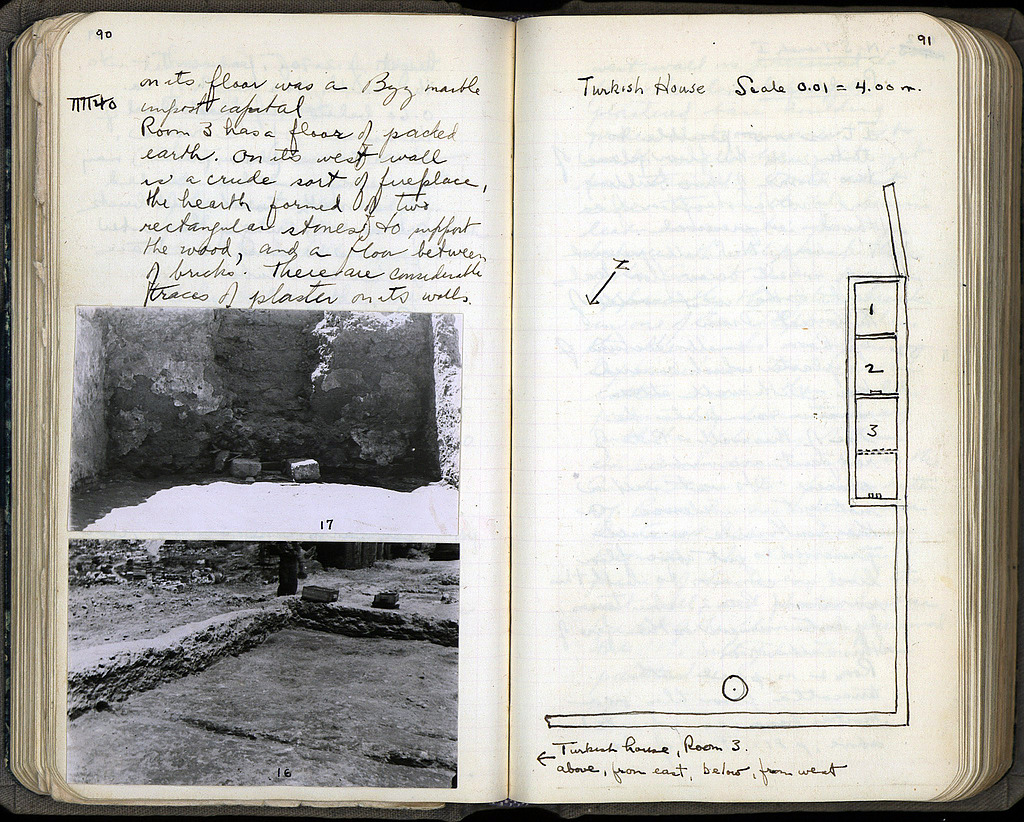 90
on its floor was a Byz marble
impost capital
Room 3 has a floor of packed
earth. On its west wall
is a crude sort of fireplace,
the hearth formed of two
rectangular stones, to support
the wood, and a floor between
of bricks. There are considerable
traces of plaster on its walls.
17
16
91
Turkish House Scale 0.01 = 4.00 m.
N
1
2
3
Turkish house, Room 3.
← above, from east, below, from west